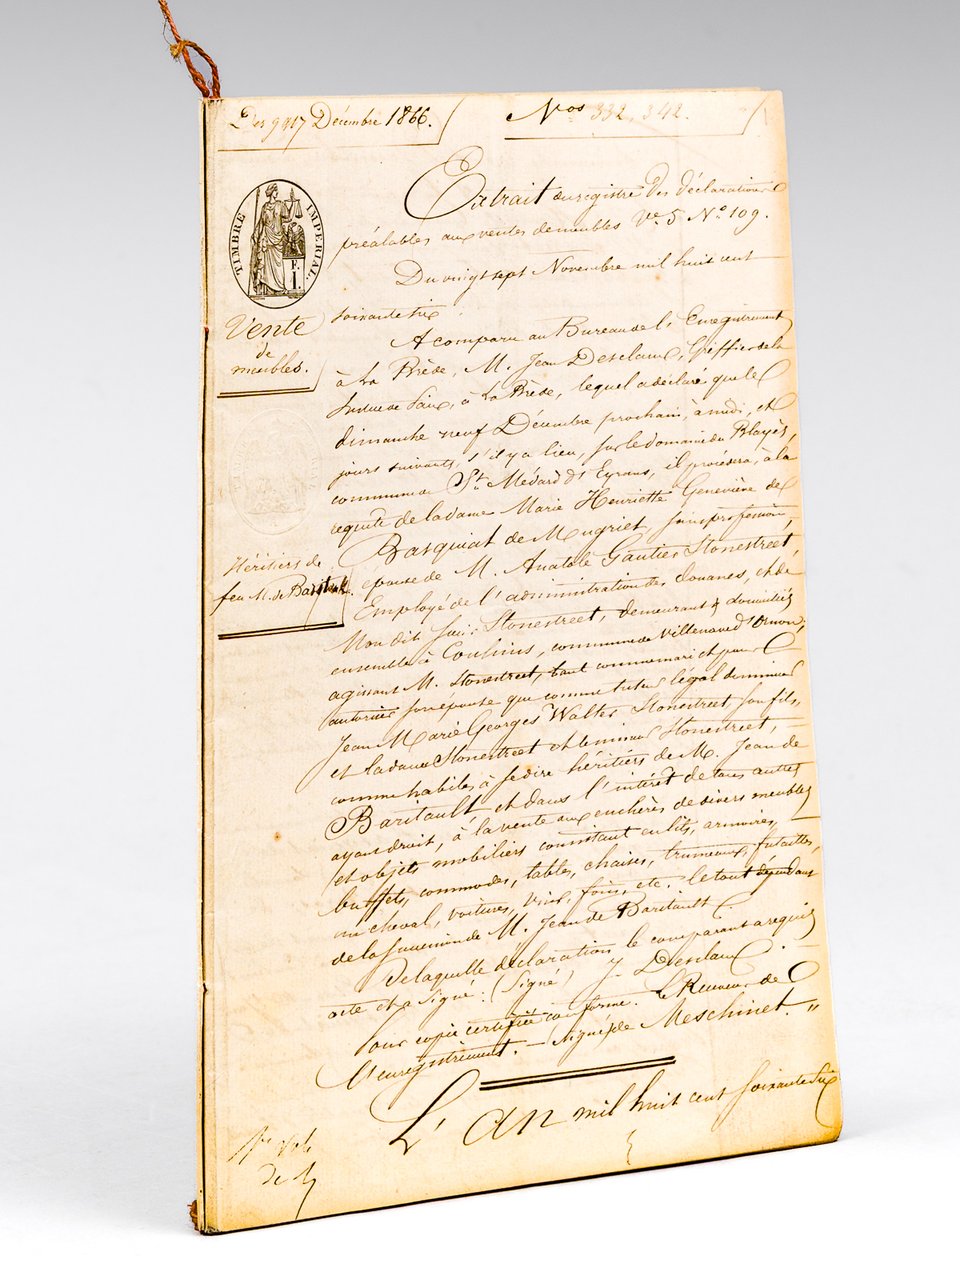 Des 9 & 17 Décembre 1866.
Nos 332, 342.
TIMBRE IMPERIAL
F.
1.
Vente
de
meubles.
Héritiers de
feu M. de Baritault.
Extrait du registre des déclarations
préalables aux ventes de meubles Ve. 5 No. 109.
Du vingt sept Novembre mil huit cent
soixante six.
A comparu au Bureau de l'Enregistrement
à La Brède, M. Jean Desclaux, Greffier de la
Justice de Paix, à La Brède, lequel a déclaré que le
dimanche neuf Décembre prochain, à midi, et
jours suivants, s'il y a lieu, sur le domaine du Blayès,
commune de St. Médard d'Eyrans, il procèdera, à la
requête de la dame Marie Henriette Geneviève de
Basquiat de Mugriet, sans profession,
épouse de M. Anatole Gautier Stonestreet,
Employé de l'administration des douanes, et de
Mon dit Sieur Stonestreet, demeurant & domiciliés
ensemble à Couhins, commune de Villenave d'Ornon;
agissant M. Stonestreet, tant comme mari et pour
autoriser son épouse que comme tuteur légal du mineur
Jean Marie Georges Walter Stonestreet, son fils,
et la dame Stonestreet et le mineur Stonestreet,
comme habiles à se dire héritiers de M. Jean de
Baritault et dans l'intérêt de tous autres
ayant droit, à la vente aux enchères de divers meubles
et objets mobiliers consistant en lits, armoires,
buffets, commodes, tables, chaises, trumeaux, futailles,
un cheval, voitures, vins, foins, etc. le tout dépendant
de la succession de M. Jean de Baritault
De laquelle déclaration le comparant a requis
acte et a signé: (Signé) J. Desclaux.
Pour copie certifiée conforme. Le Receveur de
l'enregistrement. — Signé de Meschinet. "
L'an mil huit cent soixante six